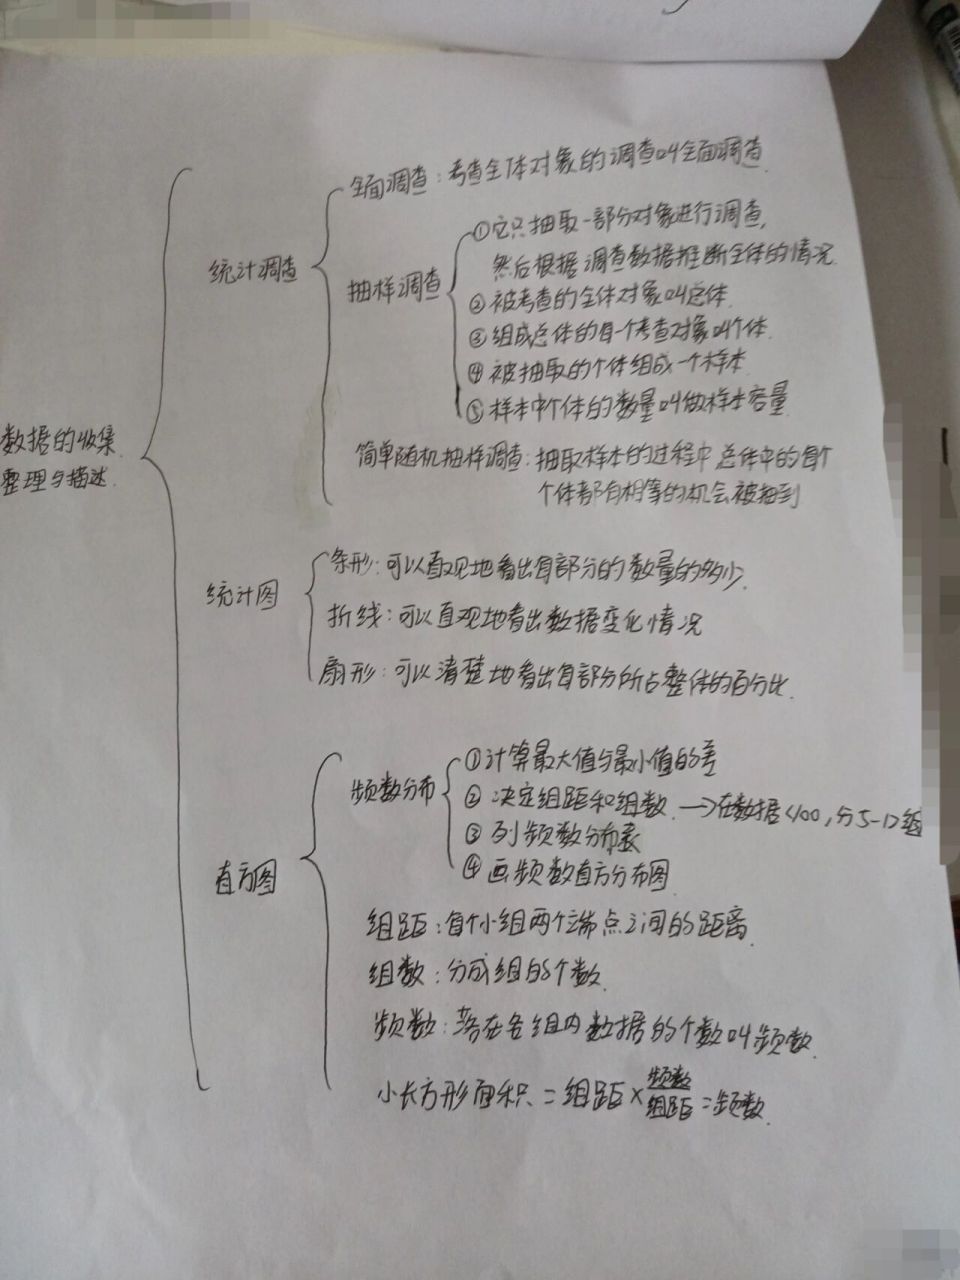 全面调查：考查全体对象的调查叫全面调查.
统计调查
抽样调查
①它只抽取一部分对象进行调查,
然后根据调查数据推断全体的情况.
②被考查的全体对象叫总体.
③组成总体的每一个考查对象叫个体.
④被抽取的个体组成一个样本.
⑤样本中个体的数量叫做样本容量
简单随机抽样调查：抽取样本的过程中总体中的每个
个体都有相等的机会被抽到
数据的收集.
整理与描述.
统计图
条形：可以直观地看出每部分的数量的多少.
折线：可以直观地看出数据变化情况
扇形：可以清楚地看出每部分所占整体的百分比.
直方图
频数分布
①计算最大值与最小值的差
②决定组距和组数.→在数据<100,分5-12组
③列频数分布表
④画频数直方分布图
组距：每个小组两个端点之间的距离.
组数：分成组的个数.
频数：落在各组内数据的个数叫频数.
小长方形面积=组距×频数/组距=频数.